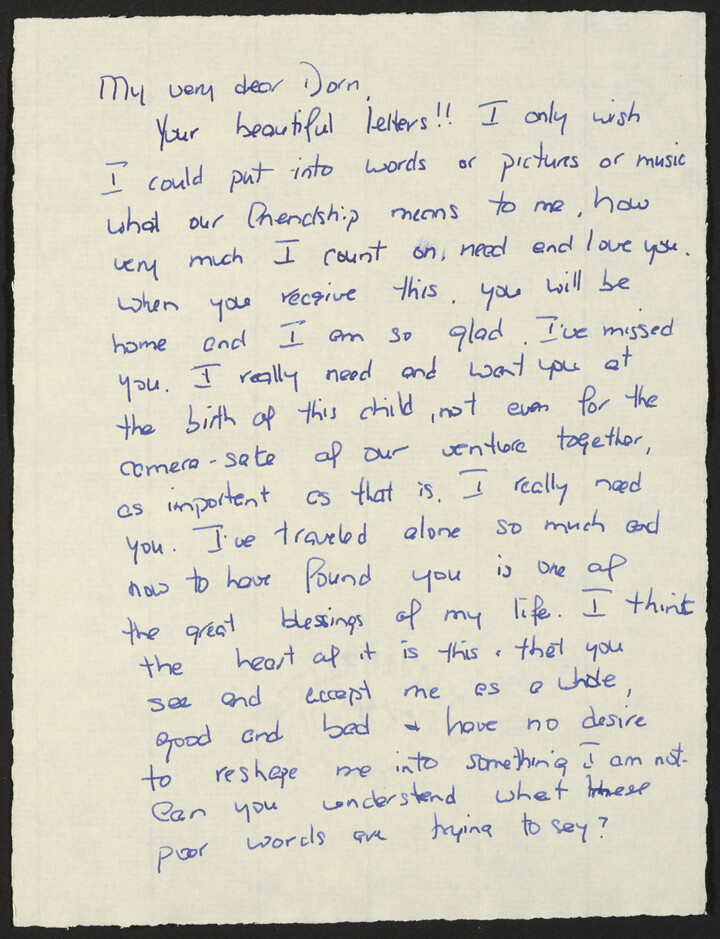 My very dear Dorn,
Your beautiful letters!! I only wish
I could put into words or pictures or music
what our friendship means to me, how
very much I count on, need and love you.
When you receive this, you will be
home and I am so glad. I've missed
you. I really need and want you at
the birth of this child, not even for the
camera-sake of our venture together,
as important as that is. I really need
you. I've traveled alone so much and
now to have found you is one of
the great blessings of my life. I think
the heart of it is this: that you
see and accept me as a whole,
good and bad & have no desire
to reshape me into something I am not.
Can you understand what these
poor words are trying to say?